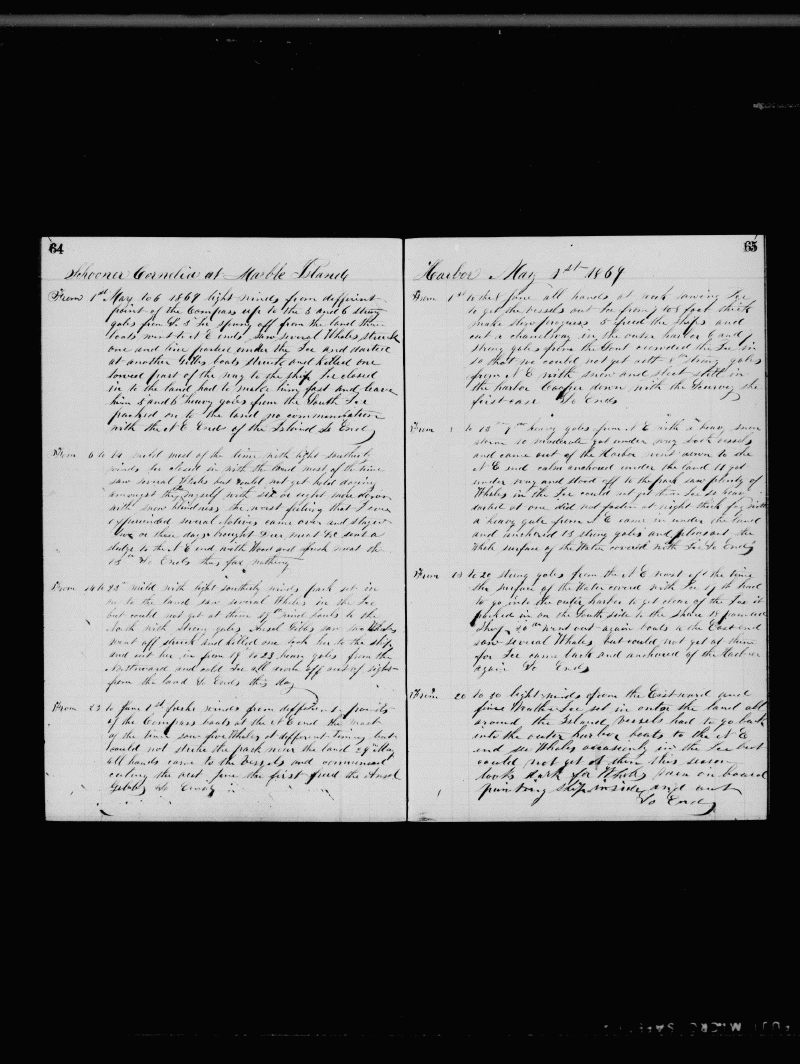 64
Schooner Cornelia at Marble Island
From 1st May to 6 1869 light winds from different
point of the Compass up to the 5 and 6 strong
gales from S. 3 Ice sprung off from the land three
boats went to N E end saw several Whales struck
one and line parted under the Ice and darted
at another Gibbs boats struck and killed one
towed part of the way to the ship Ice closed
in to the land had to make him fast and leave
him 5 and 6 heavy gales from the South Ice
packed on to the land no communication
with the N E End of the Island So Ends
From 6 to 14 mild most of the time with light southerly
winds Ice closed in with the land most of the time
saw several Whales but could not get hold
amongst the myself with six or eight more down
with snow blindness the worst feeling that I ever
experienced several Natives came over and stayed
two or three days brought Deer meat &c sent a
sledge to the N E end with Wood and fresh meat the
13th So Ends thus far nothing
From 14 to 23 mild with light southerly winds pack set in
on to the land saw several Whales in the Ice
but could not get at them 17th wind hauls to the
North with strong gales Ansel Gibbs saw two Whales
went off struck and killed one took her to the ship
and cut her in from 19 to 23 heavy gales from the
Northward and cold Ice all went off out of sight
from the land So Ends this day
From 23 to June 1st fresh winds from different points
of the Compass boats at the N E end the most
of the time saw five Whales at different times but
could not strike the pack near the land 29th May
all hands came to the Vessels and commenced
cuting the Ice June the first freed the Ansel
Gibbs So Ends
65
Harbor May 1st 1869
From 1st to the 8 June all hands at work sawing Ice
to get the vessels out Ice from 4 to 8 foot thick
make slow progress 5 freed the ships and
cut a channel way in the outer harbor 6 and 7
strong gales from the closed the Ice in
so that we could not get out 8th strong gales
from N E with snow and sleet still in
the harbor Cooper down with the Scurvy the
first case So Ends
From to 13 9th heavy gales from N E with a heavy snow
storm 10 moderate got under way both vessels
and came out of the Harbor went down to the
N E end calm anchored under the land 11 got
under way and stood off to the pack saw plenty of
Whales in the Ice could not get them Ice so
darted at one did not fasten at night thick fog with
a heavy gale from N E came in under the land
and anchored 13 strong gales and pleasant the
whole surface of the Water covered with Ice So Ends
From 13 to 20 strong gales from the N E most of the time
the surface of the Water covered with Ice 17th had
to go into the outer harbor to get clear of the Ice it
packed in on the South side to the shore 18 painted
Ship 20th went out again boats at the East end
saw several Whales but could not get at them
for Ice came back and anchored of the Harbor
again So Ends
From 20 to 30 light winds from the Eastward and
fine Weather Ice set in onto the land all
around the Island Vessels had to go back
into the outer harbor boats to the N E
end see Whales occasionly in the Ice but
could not get at them this season
looks dark for Whales men on board
painting Ship inside and out
So Ends